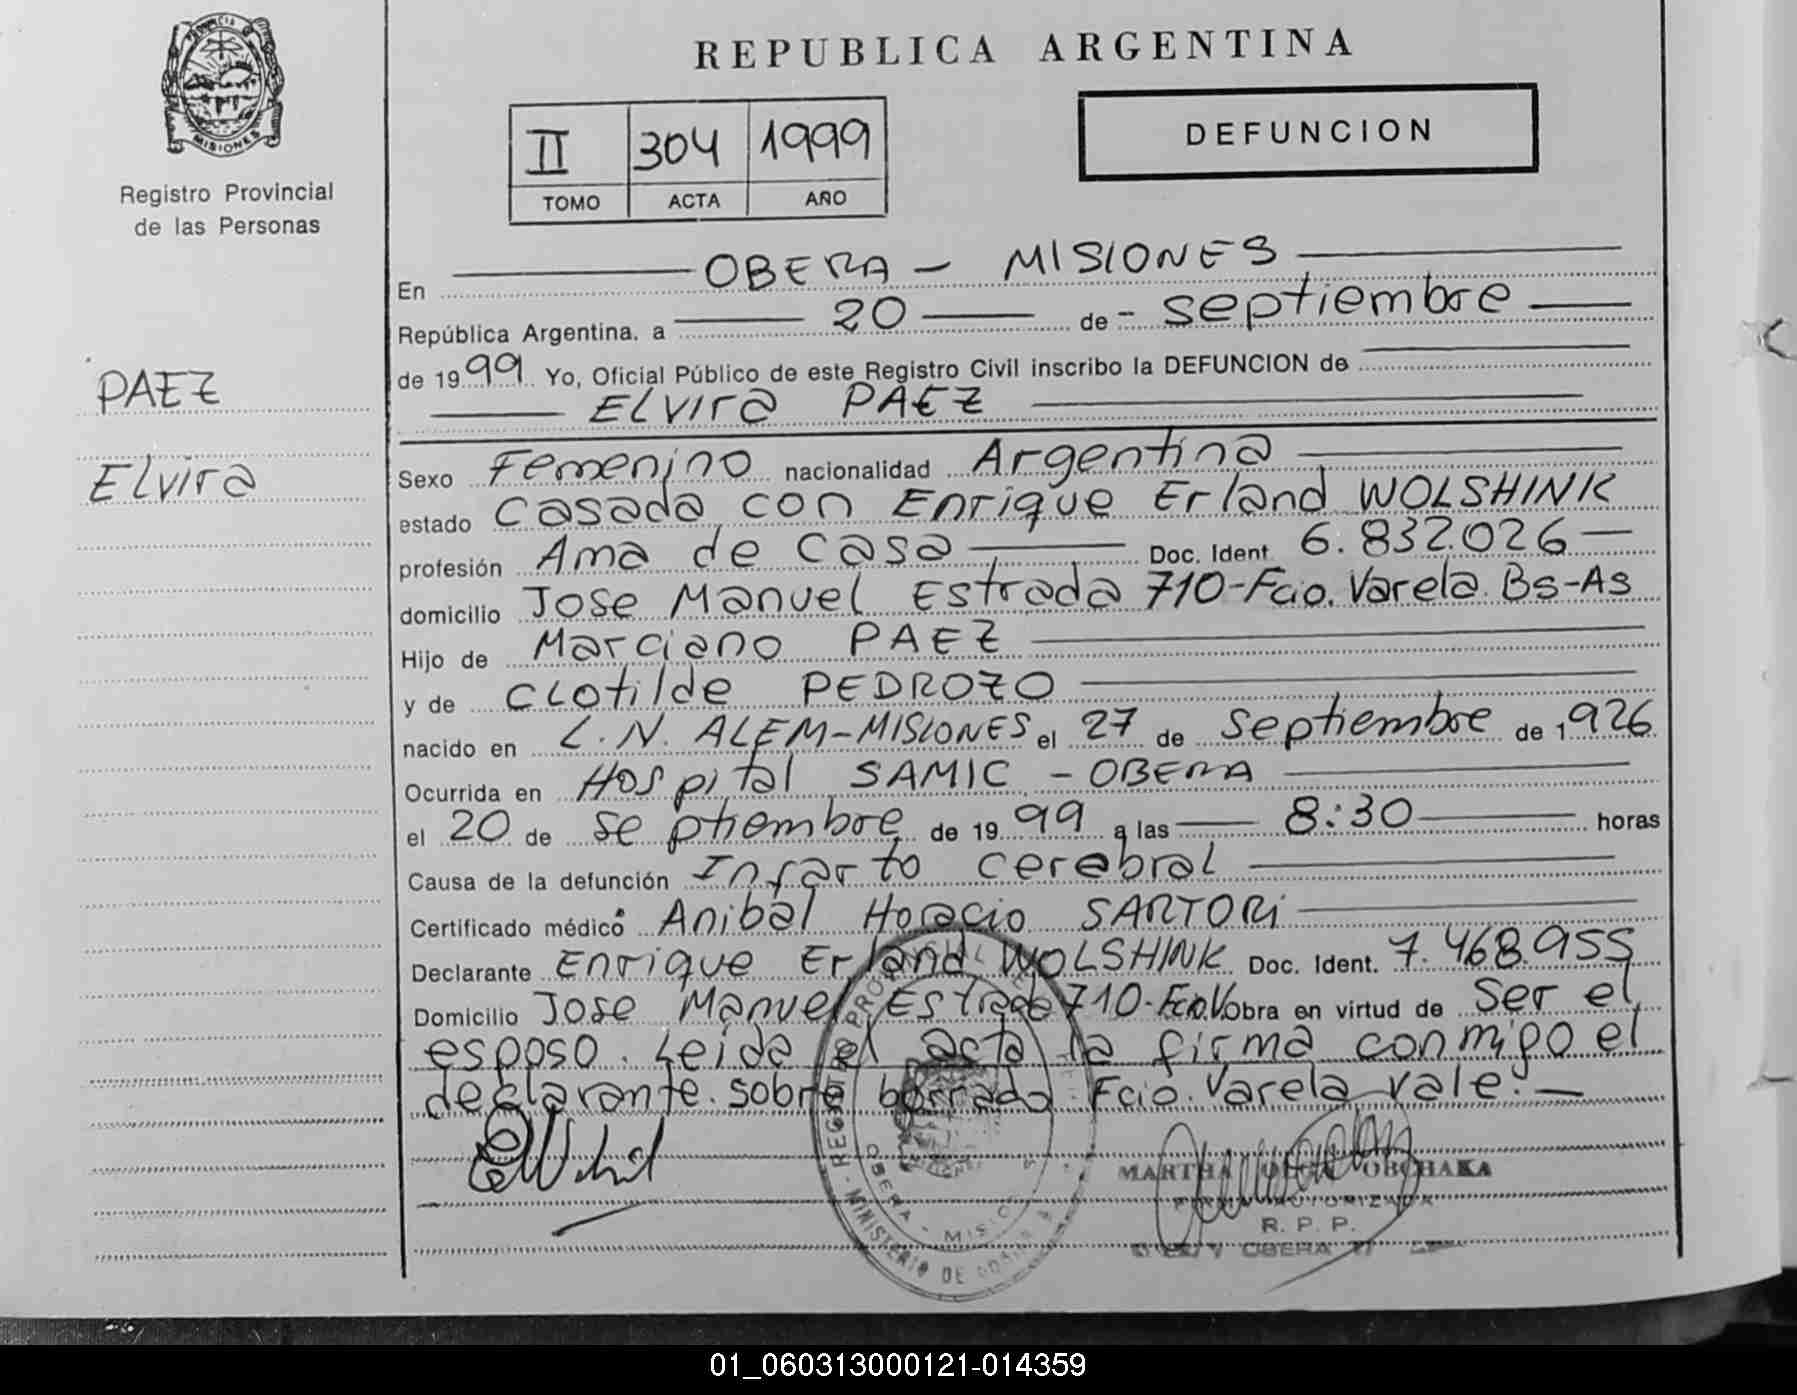 PROVINCIA DE
MISIONES
Registro Provincial
de las Personas
PAEZ
Elvira
REPUBLICA ARGENTINA
II 304 1999
TOMO ACTA AÑO
DEFUNCION
En OBERA - MISIONES
República Argentina. a 20 de - septiembre
de 1999 Yo, Oficial Público de este Registro Civil inscribo la DEFUNCION de
Elvira PAEZ
Sexo Femenino nacionalidad Argentina
estado casada con Enrique Erland WOLSHINK
profesión Ama de casa Doc. Ident. 6.832.026-
domicilio Jose Manuel Estrada 710-Fcio. Varela Bs-As
Hijo de Marciano PAEZ
y de CLotilde PEDROZO
nacido en L. N. ALEM-MISIONES el 27 de septiembre de 1926
Ocurrida en Hospital SAMIC - OBERA
el 20 de septiembre de 1999 a las 8:30 horas
Causa de la defunción Infarto cerebral
Certificado médico Anibal Horacio SARTORi
Declarante Enrique Erland WOLSHINK Doc. Ident. 7.468.955
Domicilio Jose Manuel Estrada 710-Fcio.V. obra en virtud de ser el
esposo. Leida el acta la firma conmigo el
declarante. sobre borrado Fcio. Varela vale.-
MARTHA OLGA OBCHAKA
FIRMA AUTORIZADA
R. P. P.
OBERA
MINISTERIO DE
OBERA - MISIONES
01_060313000121-014359